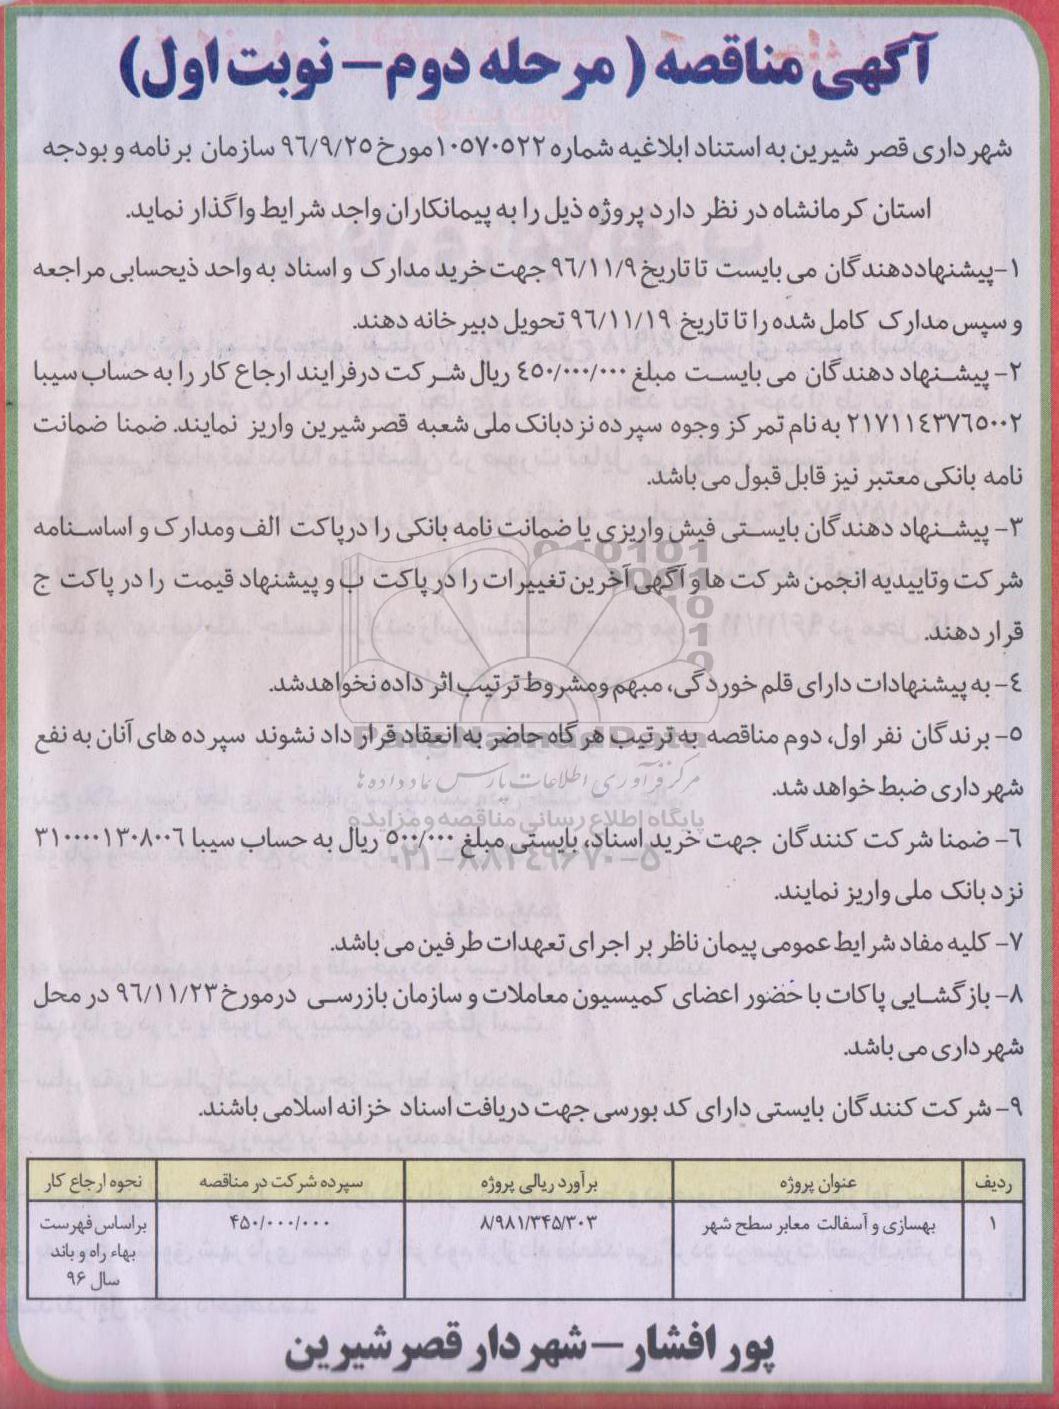 آگهی مناقصه ( مرحله دوم – نوبت اول)
شهرداری قصر شیرین به استناد ابلاغیه شماره ۱۰۵۷۰۵۲۲مورخ ۹٦/۹/۲۵ سازمان برنامه و بودجه
استان کرمانشاه در نظر دارد پروژه ذیل را به پیمانکاران واجد شرایط واگذار نماید.
۱–پیشنهاددهندگان می بایست تا تاریخ ۹٦/۱۱/۹ جهت خرید مدارک و اسناد به واحد ذیحسابی مراجعه
و سپس مدارک کامل شده را تا تاریخ ۹٦/۱۱/۱۹ تحویل دبیرخانه دهند.
۲– پیشنهاد دهندگان می بایست مبلغ ٤۵۰/۰۰۰/۰۰۰ ریال شرکت درفرایند ارجاع کار را به حساب سیبا
۲۱۷۱۱٤۳۷٦۵۰۰۲ به نام تمرکز وجوه سپرده نزدبانک ملی شعبه قصرشیرین واریز نمایند. ضمنا ضمانت
نامه بانکی معتبر نیز قابل قبول می باشد.
۳– پیشنهاد دهندگان بایستی فیش واریزی یا ضمانت نامه بانکی را درپاکت الف ومدارک و اساسنامه
شرکت وتاییدیه انجمن شرکت ها و آگهی آخرین تغییرات را در پاکت ب و پیشنهاد قیمت را در پاکت ج
قرار دهند.
٤– به پیشنهادات دارای قلم خوردگی، مبهم ومشروط ترتیب اثر داده نخواهدشد.
۵– برندگان نفر اول، دوم مناقصه به ترتیب هرگاه حاضر به انعقاد قرار داد نشوند سپرده های آنان به نفع
شهرداری ضبط خواهد شد.
٦– ضمنا شرکت کنندگان جهت خرید اسناد، بایستی مبلغ ۵۰۰/۰۰۰ ریال به حساب سیبا ۳۱۰۰۰۰۱۳۰۸۰۰٦
نزد بانک ملی واریز نمایند.
۷– کلیه مفاد شرایط عمومی پیمان ناظر بر اجرای تعهدات طرفین می باشد.
۸– بازگشایی پاکات با حضور اعضای کمیسیون معاملات و سازمان بازرسی درمورخ ۹٦/۱۱/۲۳ در محل
شهرداری می باشد.
۹– شرکت کنندگان بایستی دارای کد بورسی جهت دریافت اسناد خزانه اسلامی باشند.
ردیف عنوان پروژه برآورد ریالی پروژه سپرده شرکت در مناقصه نحوه ارجاع کار
۱ بهسازی و آسفالت معابر سطح شهر ۸/۹۸۱/۳۴۵/۳۰۳ ۴۵۰/۰۰۰/۰۰۰ براساس فهرست
بهاء راه و باند
سال ۹۶
پور افشار – شهردار قصرشیرین
ParsNamadData
مرکز فرآوری اطلاعات پارس نماد داده ها
پایگاه اطلاع رسانی مناقصه و مزایده
۰۲۱–۸۸۳۴۹۶۷۰–۵